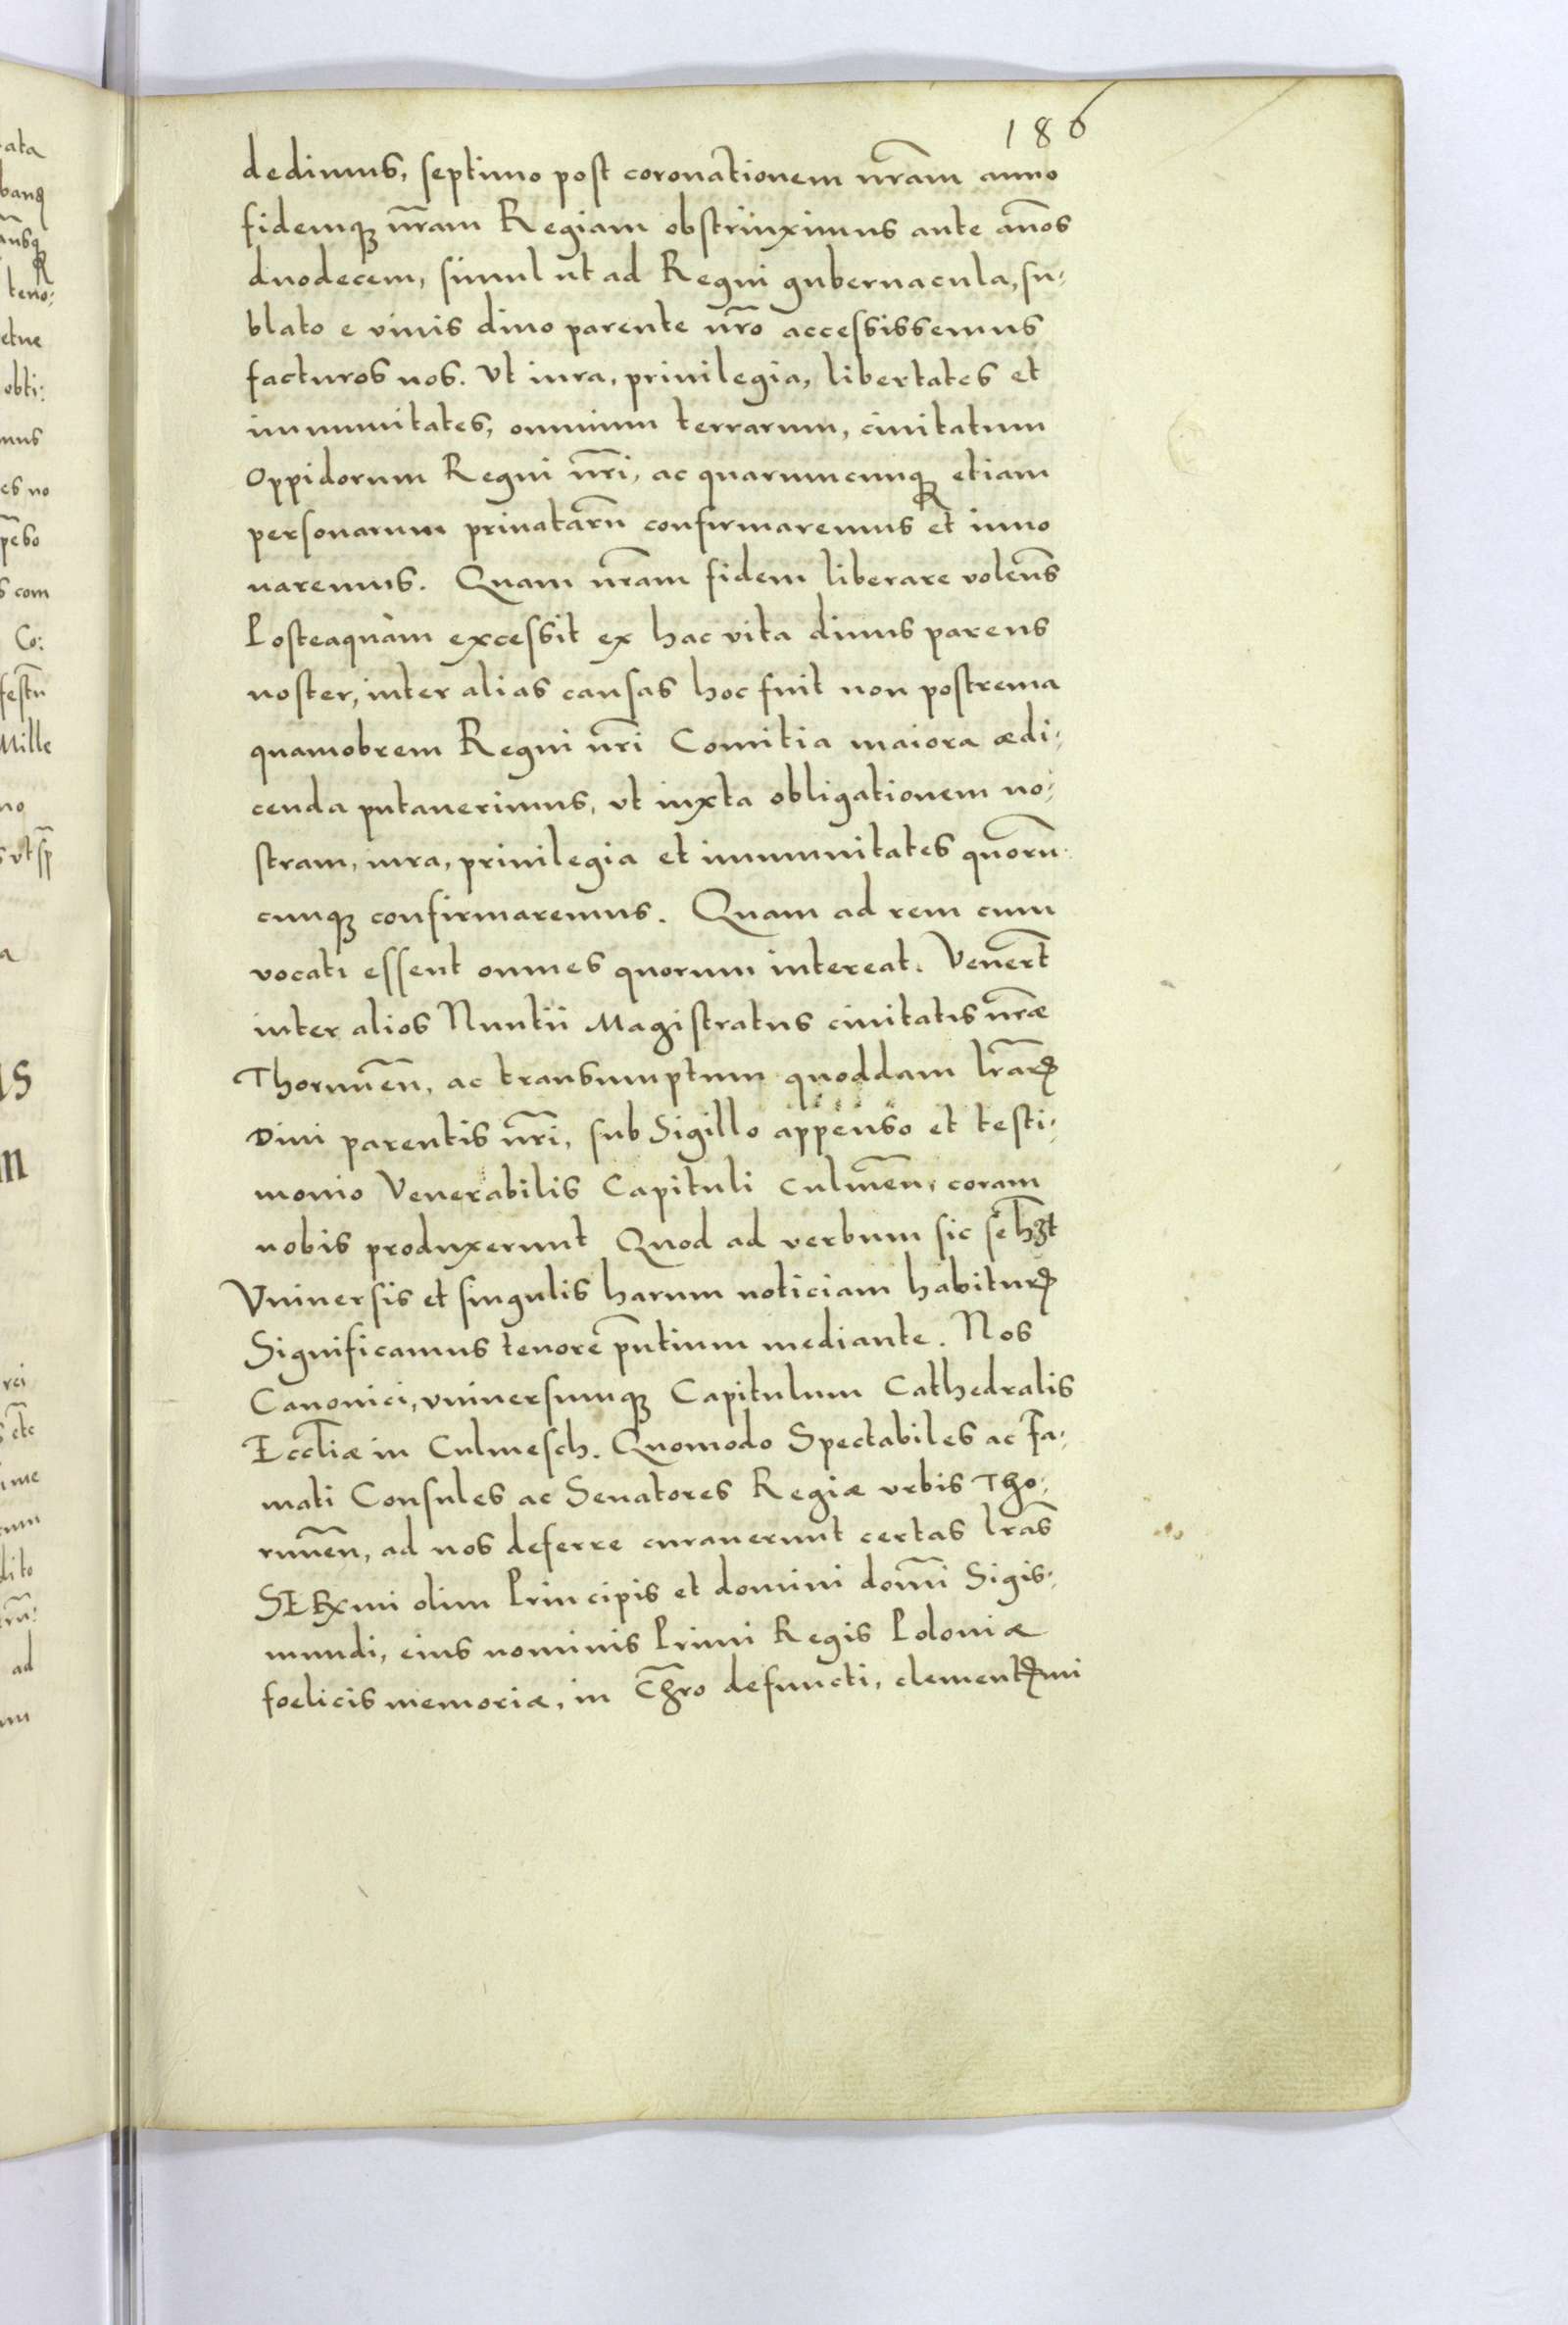 186
dedimus, septimo post coronationem nr̃am anno
fidemqꝫ nr̃am Regiam obstrinximus ante an̄os
duodecem, simul ut ad Regni gubernacula, su-
blato e viuis diuo parente nr̃o accessissemus
facturos nos. Vt iura, priuilegia, libertates et
immunitates, omnium terrarum, ciuitatum
Oppidorum Regni nr̃i, ac quarumcunqꝫ etiam
personarum priuatarū confirmaremus et inno
uaremus. Quam nr̃am fidem liberare volen̄s
Posteaquàm excessit ex hac vita diuus parens
noster, inter alias causas hoc fuit non postrema
quamobrem Regni nr̃i Comitia maiora ædi-
cenda putauerimus, vt iuxta obligationem no-
stram, iura, priuilegia et immunitates quorū-
cunqꝫ confirmaremus. Quam ad rem cum
vocati essent omnes quorum intereat. Venert̄
inter alios Nuntii Magistratus ciuitatis nr̃æ
Thorunen̄, ac transumptum quoddam lr̃arꝝ
Diui parentis nr̃i, sub Sigillo appenso et testi-
monio Venerabilis Capituli Culmen̄, coram
nobis produxerunt Quod ad verbum sic se hꝫt
Vniuersis et singulis harum noticiam habiturꝝ
Significamus tenore pn̄tium mediante. Nos
Canonici, vniuersumqꝫ Capitulum Cathedralis
Eccl̄iæ in Culmesch. Quomodo Spectabiles ac Fa-
mati Consules ac Senatores Regiæ vrbis Tho-
runen̄, ad nos deferre curauerunt certas lr̃as
SERxmi olim Principis et domini domī Sigis-
mundi, eius nominis Primi Regis Poloniæ
foelicis memoriæ, in Chr̃o defuncti, clementꝭmi